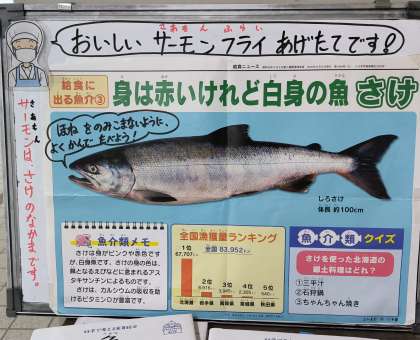 おいしい サーモンフライ あげたてです!
さあもん ふらい
給食ニュース
給食に
出る魚介③
身は赤いけれど白身の魚 さけ
さあもん
サーモンは、さけのなかまです。
ほねをのみこまないように、
よくかんでたべよう!
しろさけ
体長 約100cm
魚介類メモ
さけは身がピンクや赤色です
が、白身魚です。さけの身の色は、
餌となるえびなどに含まれるアス
タキサンチンによるものです。
さけは、カルシウムの吸収を助
けるビタミンDが豊富です。
全国漁獲量ランキング
全国 83,952トン
1位
67,707トン
2位
3位
4位
5位
北海道
岩手県
青森県
宮城県
秋田県
魚介類クイズ
さけを使った北海道の
郷土料理はどれ?
①三平汁
②石狩鍋
③ちゃんちゃん焼き